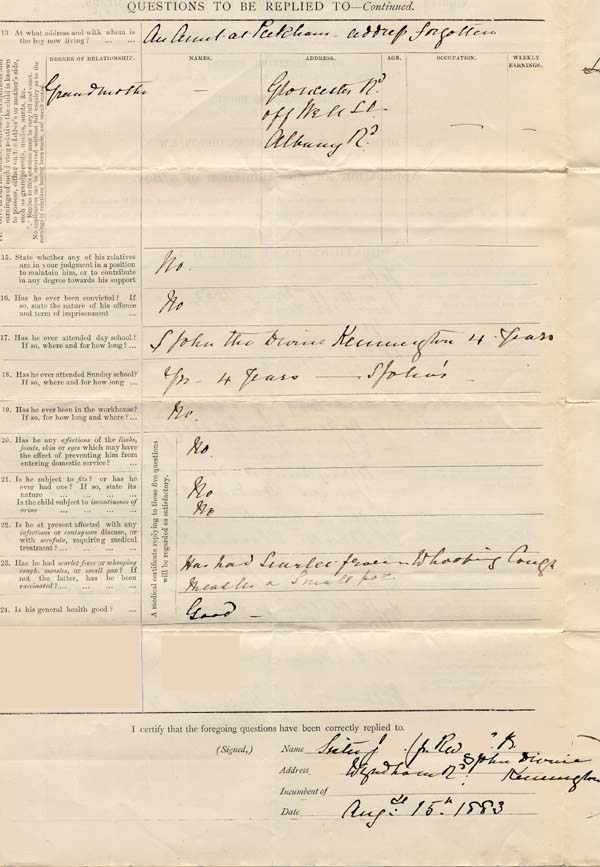 QUESTIONS TO BE REPLIED TO—Continued.
13. At what address and with whom is
the boy now living? ... ...
An Aunt at Peckham - address forgotten
DEGREE OF RELATIONSHIP. NAMES. ADDRESS. AGE. OCCUPATION. WEEKLY
EARNINGS.
earnings of each living relative the child is known
to possess, either on the father's or mother's side,
such as grandparents, uncles, aunts, &c.
Grandmother — Gloucester Rd.
off
Albany Rd.
15. State whether any of his relatives
are in your judgment in a position
to maintain him, or to contribute
in any degree towards his support
No.
16. Has he ever been convicted? If
so, state the nature of his offence
and term of imprisonment ...
No
17. Has he ever attended day school?
If so, where and for how long? ...
S John the Divine Kennington 4 Years
18. Has he ever attended Sunday school?
If so, where and for how long ...
Yes - 4 Years — S John's -
19. Has he ever been in the workhouse?
If so, for how long and where? ...
No.
A medical certificate replying to these five questions
will be regarded as satisfactory.
20. Has he any affections of the limbs,
joints, skin or eyes which may have
the effect of preventing him from
entering domestic service? ...
No.
21. Is he subject to fits? or has he
ever had one? If so, state its
nature ... ... ... ...
No
Is the child subject to incontinence of
urine ... ... ... ...
No
22. Is he at present affected with any
infectious or contagious disease, or
with scrofula, requiring medical
treatment? ... ... ... ...
23. Has he had scarlet fever or whooping
cough, measles, or small pox? If
not the latter, has he been
vaccinated? ... ... ... ...
Has had Scarlet Whooping Cough
Measles & Small pox
24. Is his general health good? ...
Good —
I certify that the foregoing questions have been correctly replied to.
(Signed,) Name Sister J
S John Divine
Address Wyndham Rd. Kennington
Incumbent of
Date Aug: 15th 1883